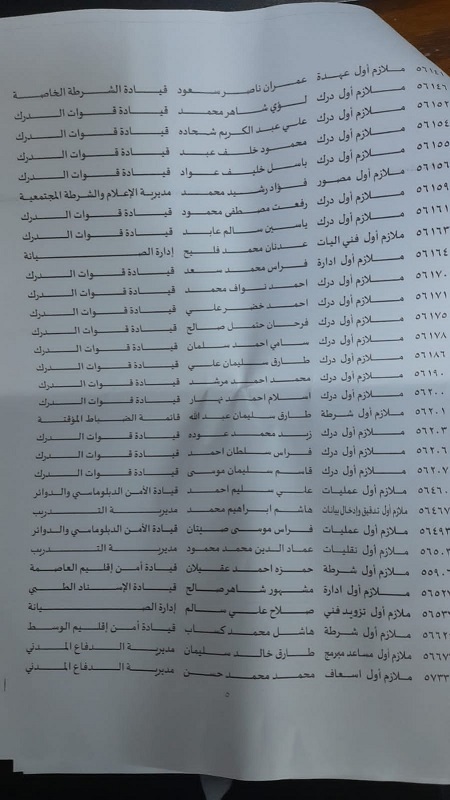 ٥٦١٤١ ملازم أول عهدة عمران ناصر سعود قيادة الشرطة الخاصة
٥٦١٤٦ ملازم أول درك لؤي شاهر محمد قيادة قوات الدرك
٥٦١٥٢ ملازم أول درك علي عبد الكريم شحاده قيادة قوات الدرك
٥٦١٥٤ ملازم أول درك محمود خلف عبد قيادة قوات الدرك
٥٦١٥٥ ملازم أول درك باسل خليف عواد قيادة قوات الدرك
٥٦١٥٦ ملازم أول مصور فؤاد رشيد محمد مديرية الإعلام والشرطة المجتمعية
٥٦١٥٩ ملازم أول درك رفعت مصطفى محمود قيادة قوات الدرك
٥٦١٦١ ملازم أول درك ياسين سالم عابد قيادة قوات الدرك
٥٦١٦٣ ملازم أول فني اليات عدنان محمد فليح إدارة الصيانة
٥٦١٦٤ ملازم أول ادارة فراس محمد سعد قيادة قوات الدرك
٥٦١٧٠ ملازم أول درك احمد نواف محمد قيادة قوات الدرك
٥٦١٧١ ملازم أول درك احمد خضر علي قيادة قوات الدرك
٥٦١٧٥ ملازم أول درك فرحان حتمل صالح قيادة قوات الدرك
٥٦١٧٨ ملازم أول درك سامي احمد سلمان قيادة قوات الدرك
٥٦١٨٦ ملازم أول درك طارق سليمان علي قيادة قوات الدرك
٥٦١٩٠ ملازم أول درك محمد احمد مرشد قيادة قوات الدرك
٥٦٢٠٠ ملازم أول درك اسلام احمد نهار قيادة قوات الدرك
٥٦٢٠١ ملازم أول شرطة طارق سليمان عبد الله قائمة الضباط المؤقتة
٥٦٢٠٣ ملازم أول درك زيد محمد عوده قيادة قوات الدرك
٥٦٢٠٦ ملازم أول درك فراس سلطان احمد قيادة قوات الدرك
٥٦٢٠٧ ملازم أول درك قاسم سليمان موسى قيادة قوات الدرك
٥٦٤٦٠ ملازم أول عمليات علي سليم احمد قيادة الأمن الدبلوماسي والدوائر
٥٦٤٦٧ ملازم أول تدقيق وإدخال بيانات هاشم ابراهيم محمد مديرية التدريب
٥٦٤٩٣ ملازم أول عمليات فراس موسى صيتان قيادة الأمن الدبلوماسي والدوائر
ملازم أول نقليات عماد الدين محمد محمود مديرية التدريب
ملازم أول شرطة حمزه احمد عقيلان قيادة أمن إقليم العاصمة
ملازم أول ادارة مشهور شاهر صالح قيادة الإسناد الطبي
ملازم أول تزويد فني صلاح علي سالم إدارة الصيانة
ملازم أول شرطة هاشل محمد كساب قيادة أمن إقليم الوسط
ملازم أول مساعد مبرمج طارق خالد سليمان مديرية الدفاع المدني
ملازم أول اسعاف محمد محمد حسن مديرية الدفاع المدني